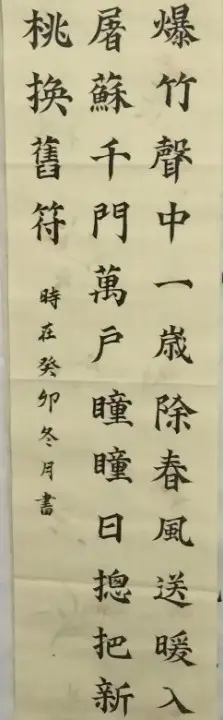 爆竹聲中一歲除春風送暖入
屠蘇千門萬户瞳瞳日摠把新
桃換舊符
時在癸卯冬月書